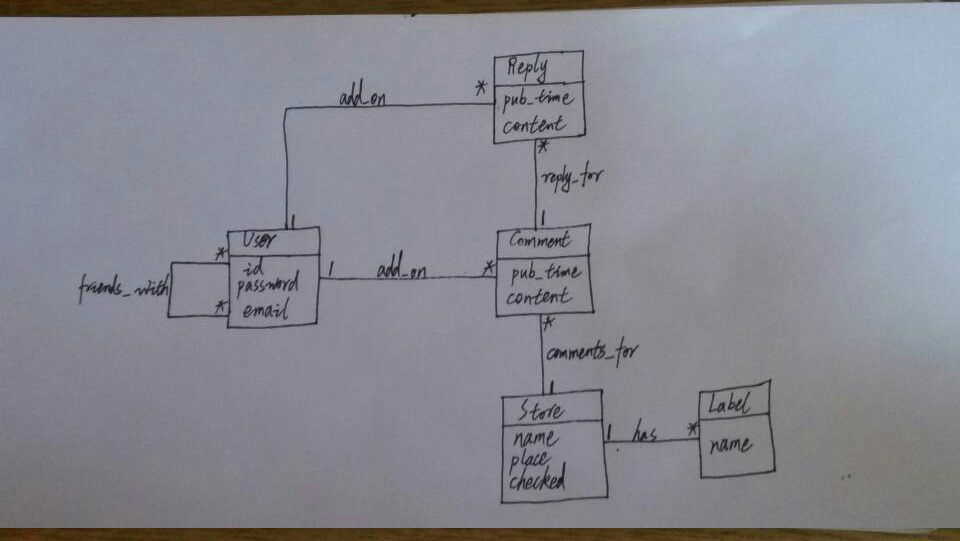 Reply
pub_time
content
add_on
*
*
reply_for
1
1
User
id
password
email
friends_with
*
*
1
add_on
*
Comment
pub_time
content
*
comments_for
1
Store
name
place
checked
1
has
*
Label
name